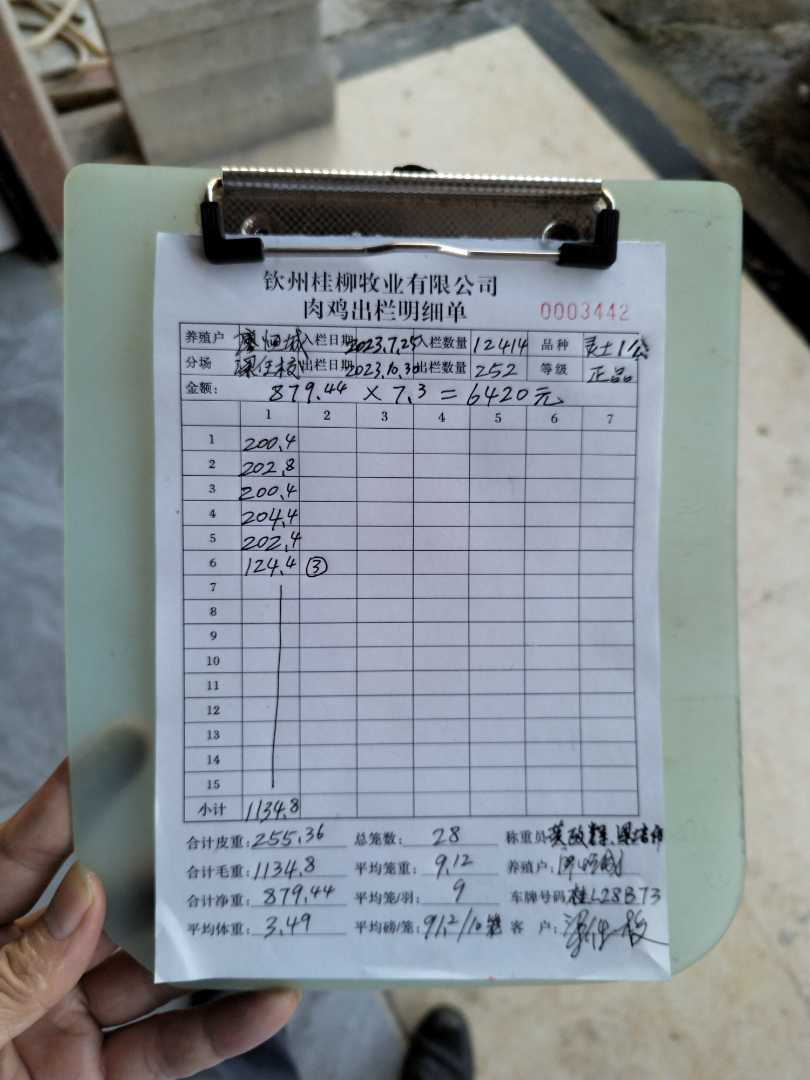 钦州桂柳牧业有限公司
肉鸡出栏明细单 0003442
养殖户 入栏日期 2023.7.25 入栏数量 12414 品种 灵土1公
分场 出栏日期 2023.10.30 出栏数量 252 等级 正品
金额: 879.44 × 7.3 = 6420元
1 2 3 4 5 6 7
1 200.4
2 202.8
3 200.4
4 204.4
5 202.4
6 124.4 ③
7
8
9
10
11
12
13
14
15
小计 1134.8
合计皮重: 255.36 总笼数: 28 称重员
合计毛重: 1134.8 平均笼重: 9.12 养殖户:
合计净重: 879.44 平均笼/羽: 9 车牌号码 桂L28B73
平均体重: 3.49 平均磅/笼: 91.2/10笼 客 户: